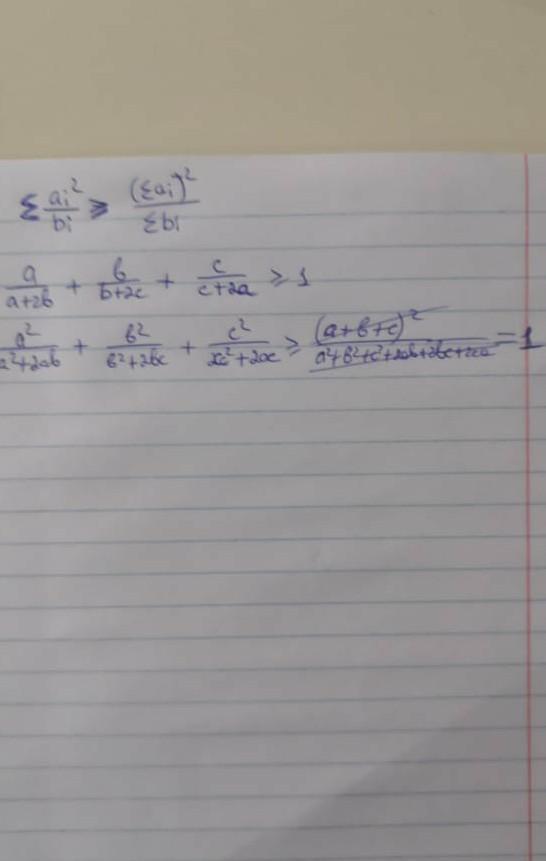 Σ aᵢ²/bᵢ ≥ (Σaᵢ)²/Σbᵢ
a/(a+2b) + b/(b+2c) + c/(c+2a) ≥ 1
a²/(a²+2ab) + b²/(b²+2bc) + c²/(c²+2ac) ≥ (a+b+c)²/(a²+b²+c²+2ab+2bc+2ca) = 1